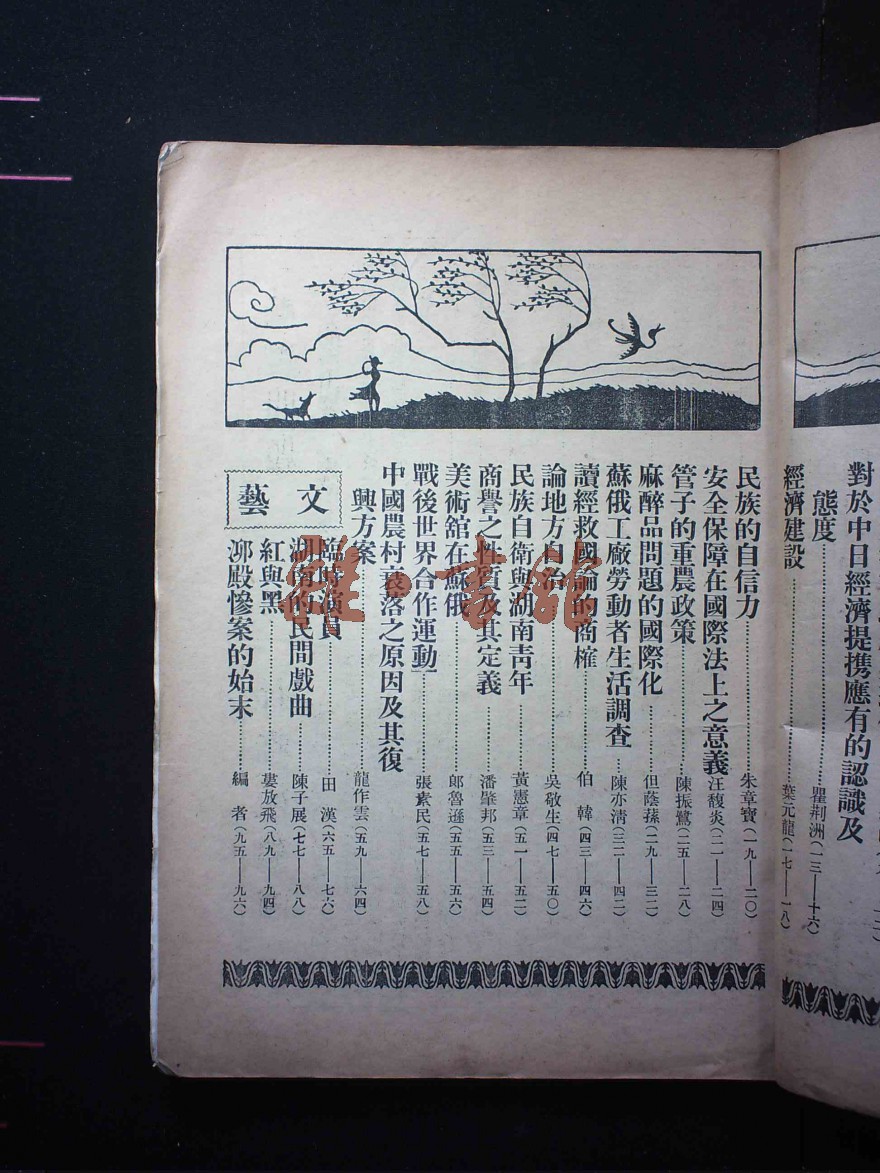 對於中日經濟提携應有的認識及
態度……瞿荆洲(一三——十六)
經濟建設……葉元龍(一七——一八)
民族的自信力……朱章寶(一九——二〇)
安全保障在國際法上之意義 汪馥炎(二一——二四)
管子的重農政策……陳振鷺(二五——二八)
麻醉品問題的國際化……但蔭蓀(二九——三二)
蘇俄工廠勞動者生活調查……陳亦清(三二——四二)
讀經救國論的商榷……伯韓(四三——四六)
論地方自治……吳敬生(四七——五〇)
民族自衛與湖南青年……黃憲章(五一——五二)
商譽之性質及其定義……潘肇邦(五三——五四)
美術舘在蘇俄……郎魯遜(五五——五六)
戰後世界合作運動……張素民(五七——五八)
中國農村衰落之原因及其復
興方案……龍作雲(五九——六四)
文藝
臨時演員……田漢(六五——七六)
湖南的民間戲曲……陳子展(七七——八八)
紅與黑……婁放飛(八九——九四)
泖殿慘案的始末……編者(九五——九六)